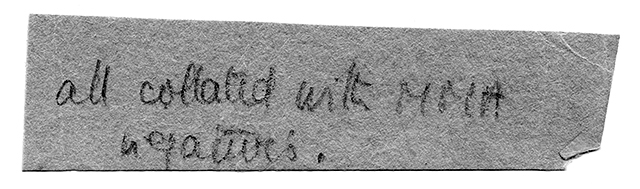 all collated with MMA
negatives.